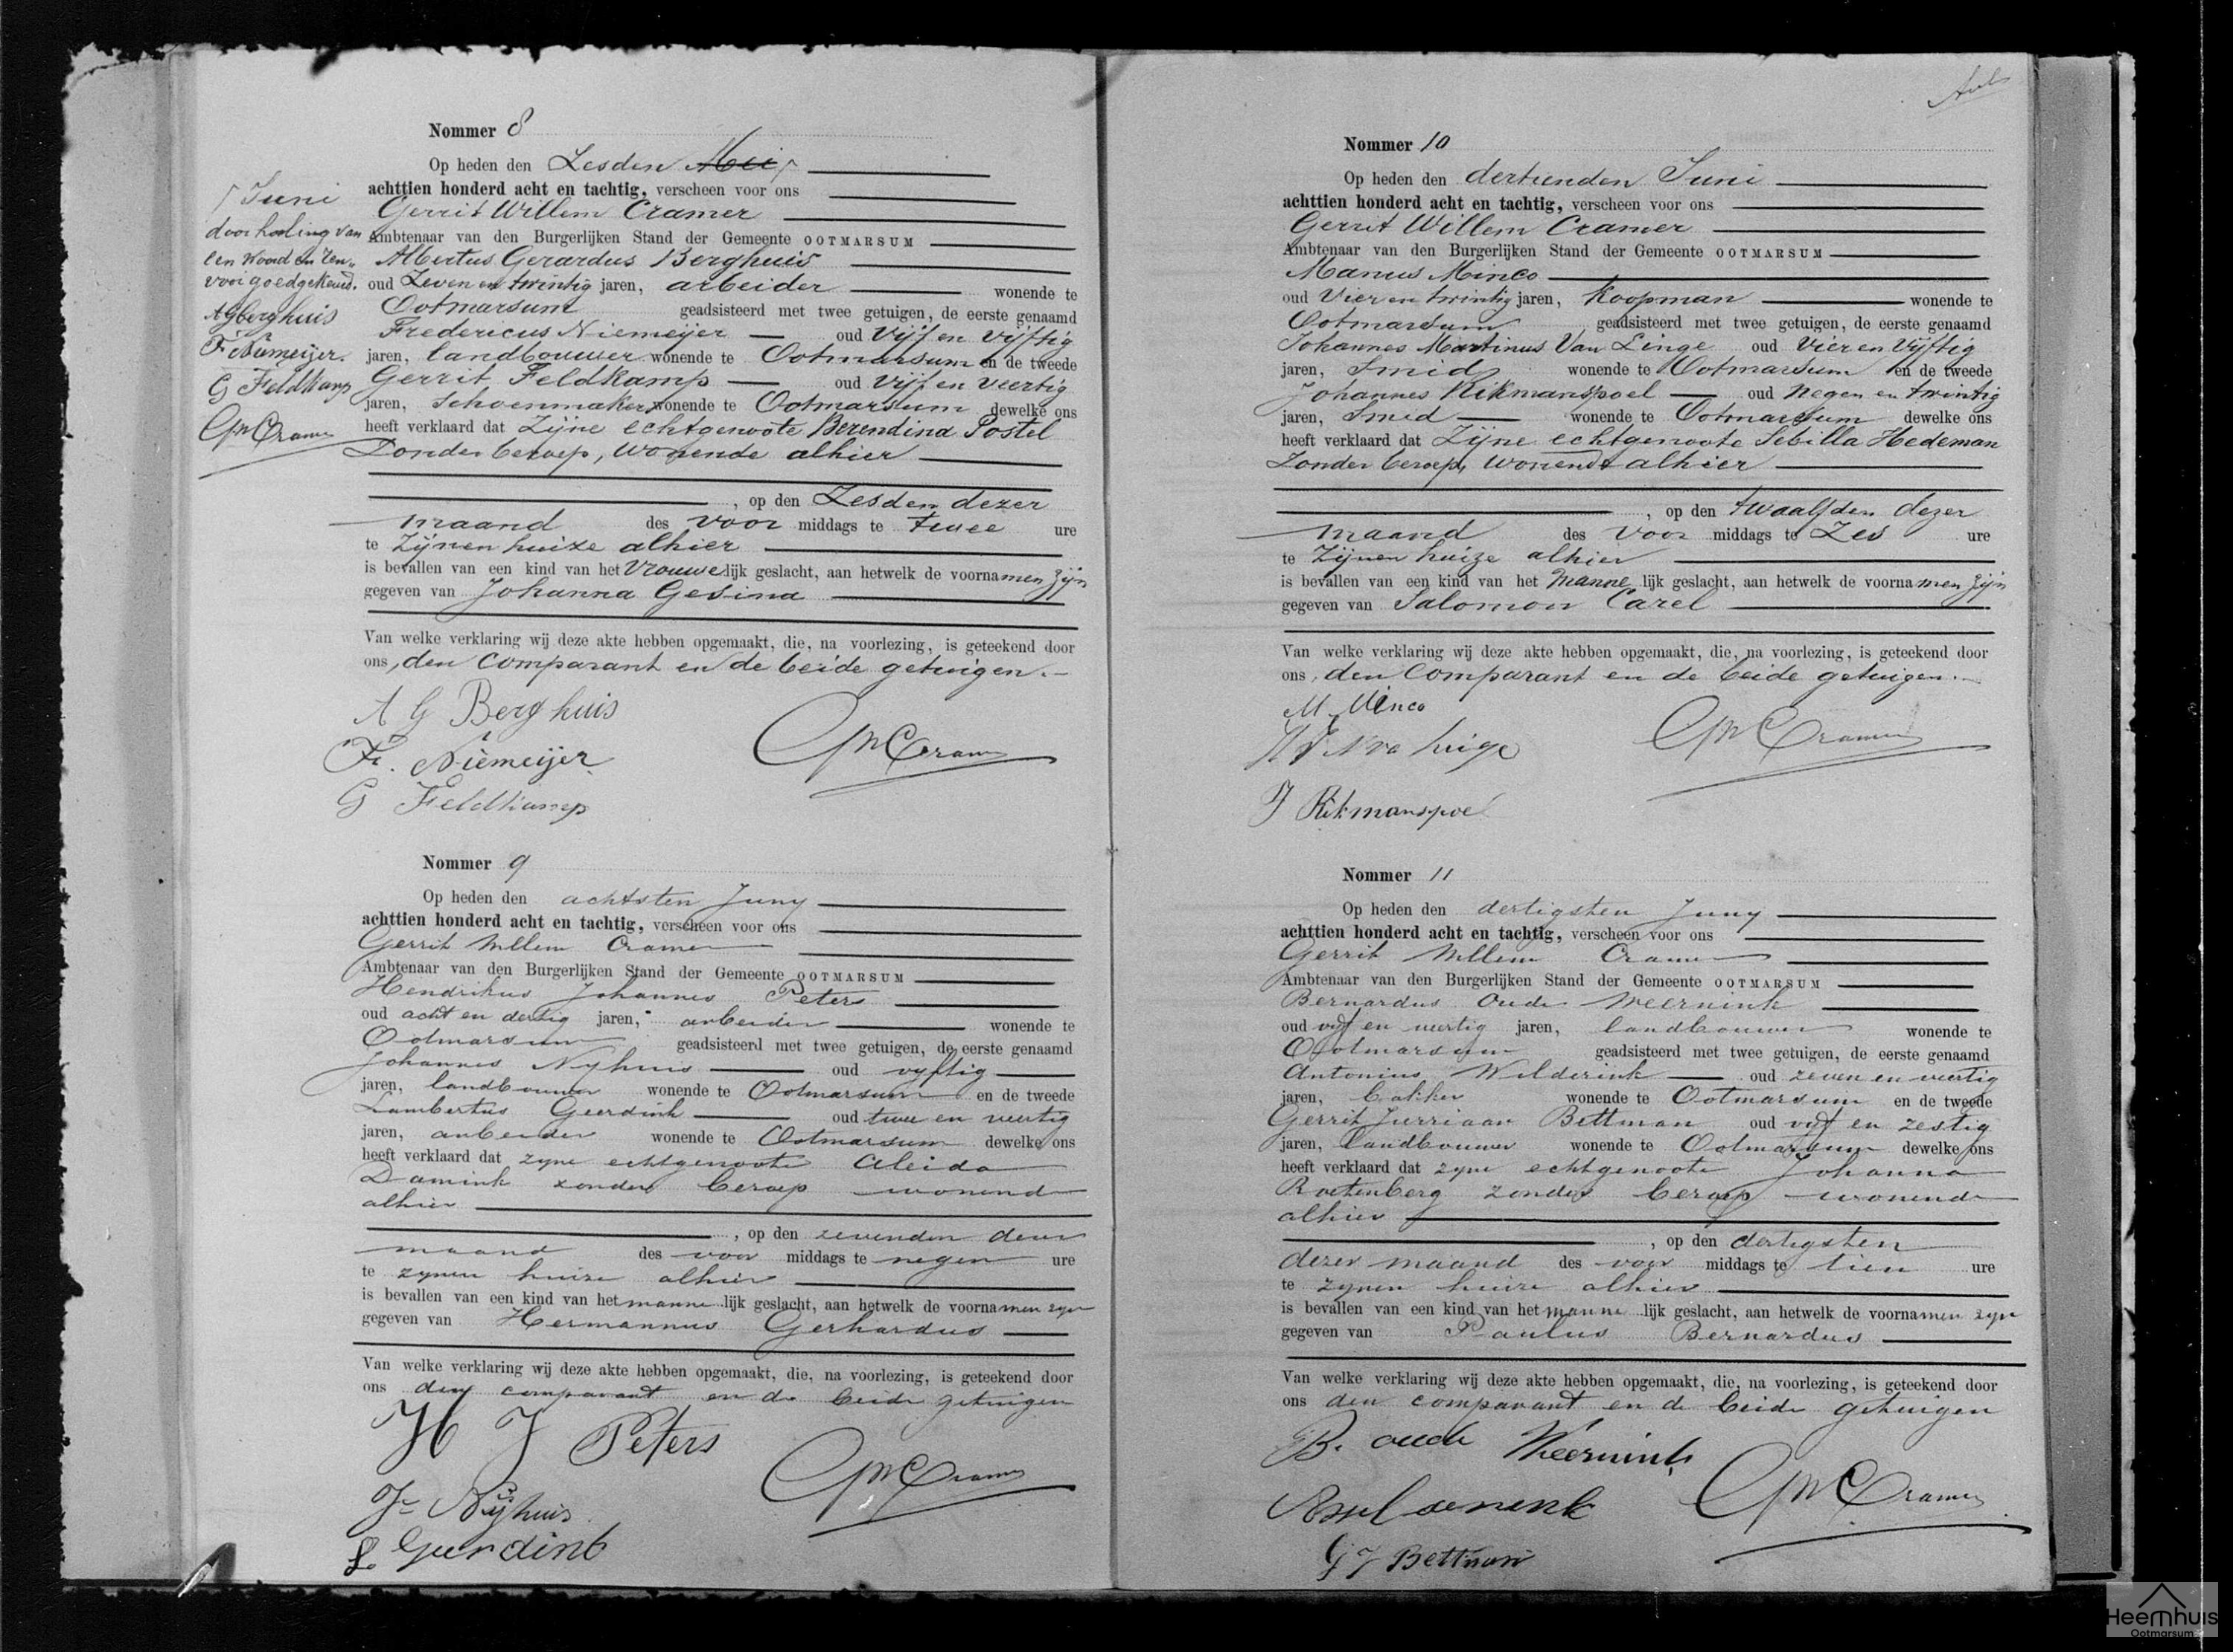 Nommer 8
Op heden den Zesden Mei
achttien honderd acht en tachtig, verscheen voor ons
Gerrit Willem Cramer
Ambtenaar van den Burgerlijken Stand der Gemeente OOTMARSUM
Albertus Gerardus Berghuis
oud Zeven en twintig jaren, arbeider wonende te
Ootmarsum geadsisteerd met twee getuigen, de eerste genaamd
Fredericus Niemeijer oud Vijf en Vijftig
jaren, landbouwer wonende te Ootmarsum en de tweede
Gerrit Feldkamp oud Vijf en Veertig
jaren, Schoenmaker wonende te Ootmarsum dewelke ons
heeft verklaard dat Zijne echtgenoote Berendina Postel
Zonder beroep, Wonende alhier
, op den Zesden dezer
maand des voor middags te twee ure
te Zijnen huize alhier
is bevallen van een kind van het Vrouwelijk geslacht, aan hetwelk de voornamen zijn
gegeven van Johanna Gesina
Van welke verklaring wij deze akte hebben opgemaakt, die, na voorlezing, is geteekend door
ons, den Comparant en de beide getuigen.-
A G Berghuis
Fr. Niemeijer
GWCramer
G Feldkamp
Juni
doorhaling van
een woord en ren-
vooi goedgekeurd.
AGberghuis
F Niemeijer.
G Feldkamp
GWCramer
Nommer 9
Op heden den achtsten Juny
achttien honderd acht en tachtig, verscheen voor ons
Gerrit Willem Cramer
Ambtenaar van den Burgerlijken Stand der Gemeente OOTMARSUM
Hendrikus Johannes Peters
oud acht en dertig jaren, arbeider wonende te
Ootmarsum geadsisteerd met twee getuigen, de eerste genaamd
Johannes Nyhuis oud vyftig
jaren, landbouwer wonende te Ootmarsum en de tweede
Lambertus Geerdink oud twee en veertig
jaren, arbeider wonende te Ootmarsum dewelke ons
heeft verklaard dat zyne echtgenoote Aleida
Damink zonder beroep wonende
alhier
, op den zevenden dezer
maand des voor middags te negen ure
te zynen huize alhier
is bevallen van een kind van het mannelijk geslacht, aan hetwelk de voornamen zyn
gegeven van Hermannus Gerhardus
Van welke verklaring wij deze akte hebben opgemaakt, die, na voorlezing, is geteekend door
ons den comparant en de beide getuigen
H J Peters
GWCramer
J. Nijhuis
L. Geerdink
Nommer 10
Op heden den dertienden Juni
achttien honderd acht en tachtig, verscheen voor ons
Gerrit Willem Cramer
Ambtenaar van den Burgerlijken Stand der Gemeente OOTMARSUM
Manus Minco
oud Vier en twintig jaren, Koopman wonende te
Ootmarsum geadsisteerd met twee getuigen, de eerste genaamd
Johannes Martinus Van Linge oud Vier en Vijftig
jaren, Smid wonende te Ootmarsum en de tweede
Johannes Rikmanspoel oud Negen en twintig
jaren, Smid wonende te Ootmarsum dewelke ons
heeft verklaard dat Zijne echtgenoote Sebilla Hedeman
Zonder beroep, Wonende alhier
, op den twaalfden dezer
maand des voor middags te Zes ure
te Zijnen huize alhier
is bevallen van een kind van het Mannelijk geslacht, aan hetwelk de voornamen zijn
gegeven van Salomon Carel
Van welke verklaring wij deze akte hebben opgemaakt, die, na voorlezing, is geteekend door
ons, den Comparant en de beide getuigen.
M. Minco
GWCramer
J Rikmanspoel
Nommer 11
Op heden den dertigsten Juny
achttien honderd acht en tachtig, verscheen voor ons
Gerrit Willem Cramer
Ambtenaar van den Burgerlijken Stand der Gemeente OOTMARSUM
Bernardus Oude Weernink
oud vijf en veertig jaren, landbouwer wonende te
Ootmarsum geadsisteerd met twee getuigen, de eerste genaamd
Antonius Wilderink oud zeven en veertig
jaren, bakker wonende te Ootmarsum en de tweede
Gerrit Jurriaan Bettman oud vijf en zestig
jaren, landbouwer wonende te Ootmarsum dewelke ons
heeft verklaard dat zyne echtgenoote Johanna
Roetenberg zonder beroep wonende
alhier
, op den dertigsten
dezer maand des voor middags te tien ure
te zynen huize alhier
is bevallen van een kind van het mannelijk geslacht, aan hetwelk de voornamen zyn
gegeven van Paulus Bernardus
Van welke verklaring wij deze akte hebben opgemaakt, die, na voorlezing, is geteekend door
ons den comparant en de beide getuigen
B. oude Weernink
GWCramer
G J Bettman
Heemhuis
Ootmarsum